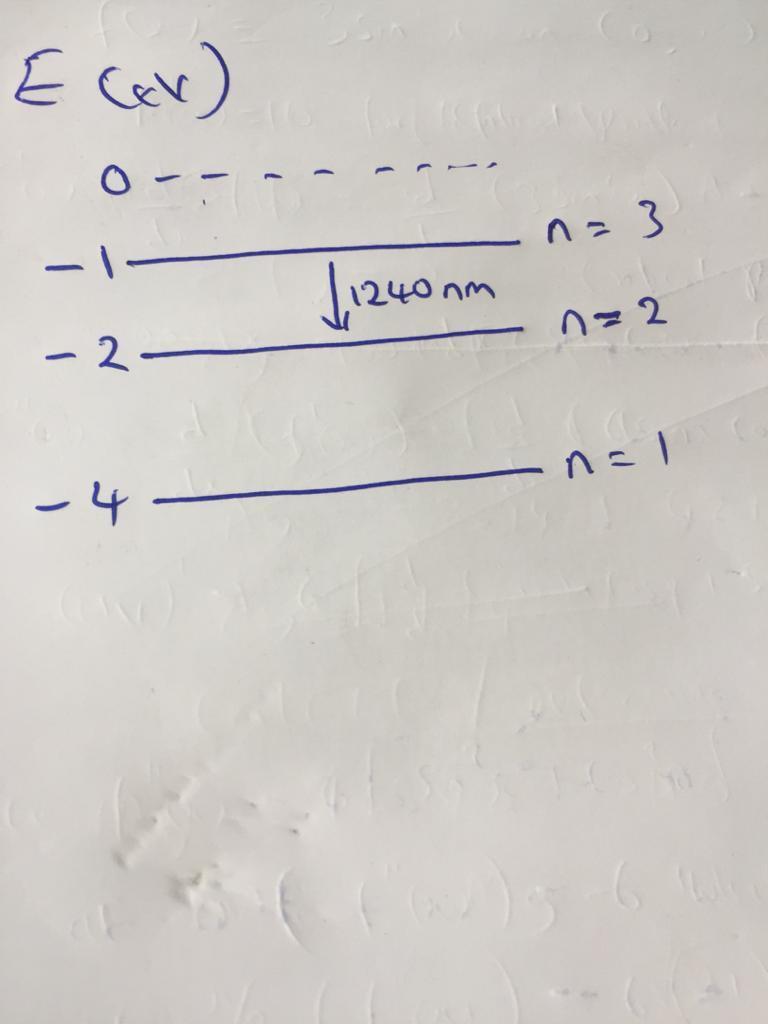 E (eV)
0
-1 n = 3
1240 nm
-2 n = 2
-4 n = 1